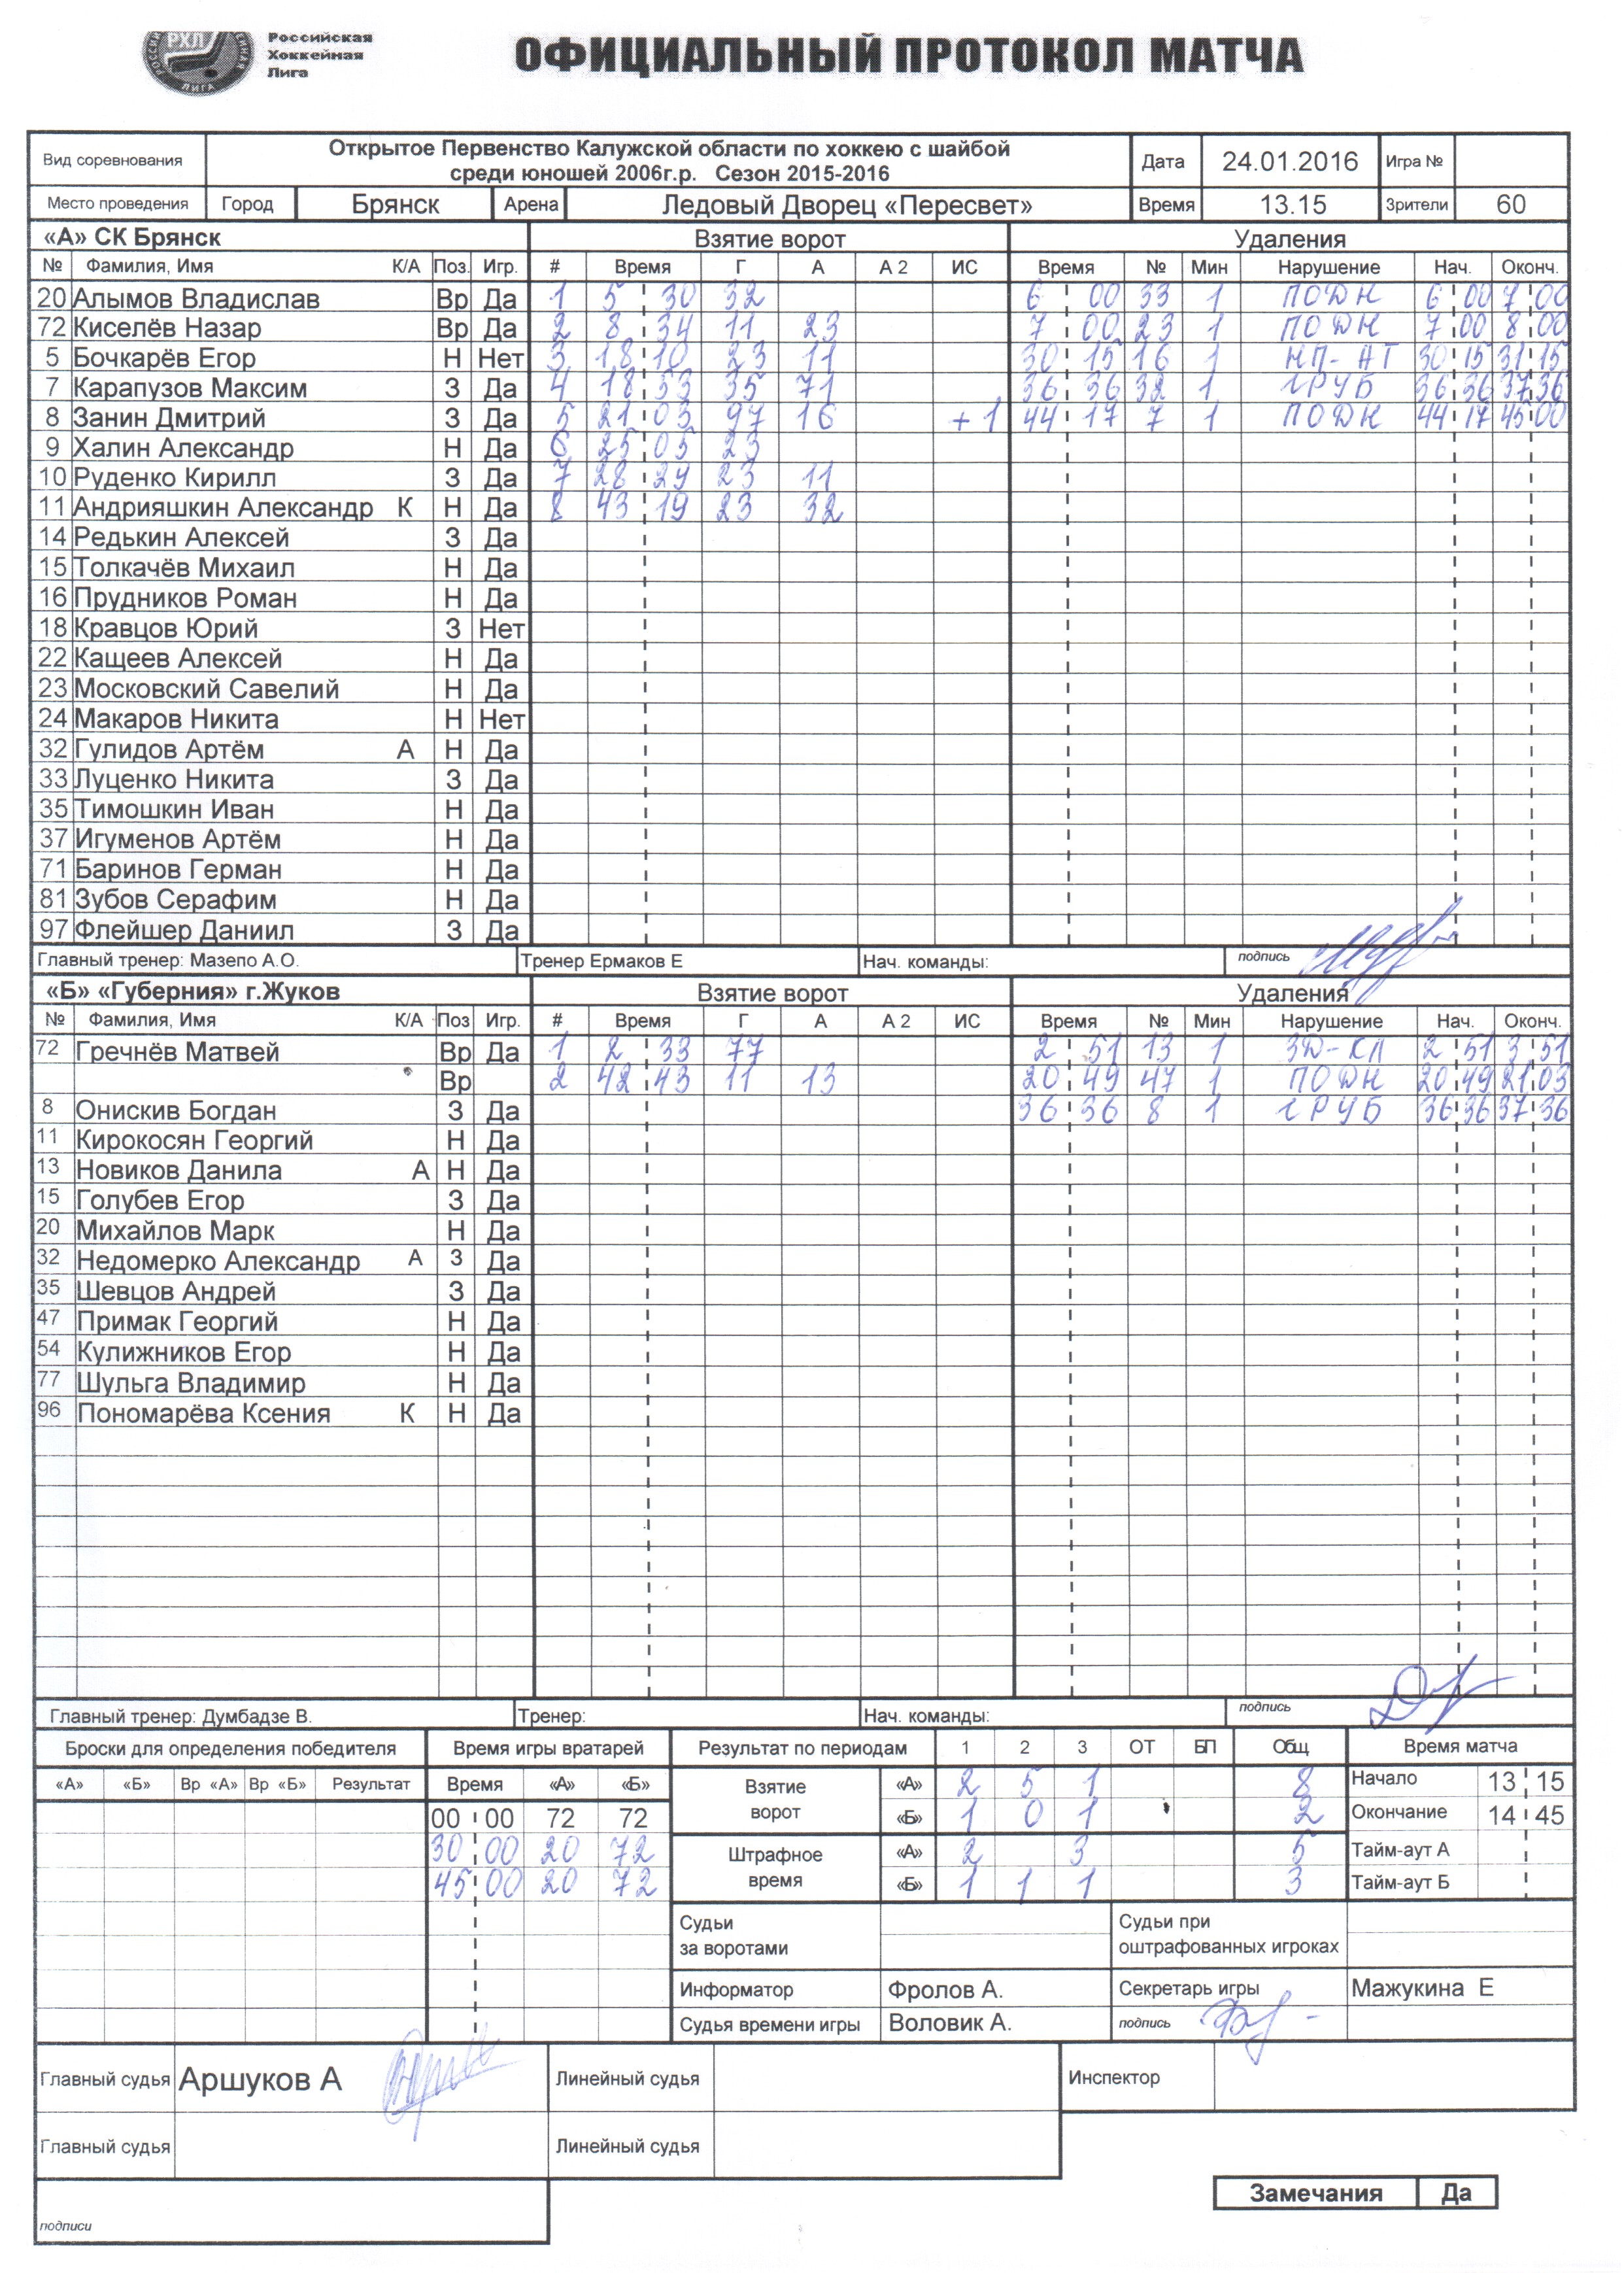 РХЛ
Российская
Хоккейная
Лига
ОФИЦИАЛЬНЫЙ ПРОТОКОЛ МАТЧА
Вид соревнования Открытое Первенство Калужской области по хоккею с шайбой среди юношей 2006г.р. Сезон 2015-2016 Дата 24.01.2016 Игра №
Место проведения Город Брянск Арена Ледовый Дворец «Пересвет» Время 13.15 Зрители 60
«А» СК Брянск Взятие ворот Удаления
№ Фамилия, Имя К/А Поз. Игр. # Время Г А А 2 ИС Время № Мин Нарушение Нач. Оконч.
20 Алымов Владислав Вр Да 1 5 30 32 6 00 33 1 ПОДН 6 00 7 00
72 Киселёв Назар Вр Да 2 8 34 11 23 7 00 23 1 ПОДН 7 00 8 00
5 Бочкарёв Егор Н Нет 3 18 10 23 11 30 15 16 1 НП-АТ 30 15 31 15
7 Карапузов Максим З Да 4 18 53 35 71 36 36 32 1 ГРУБ 36 36 37 36
8 Занин Дмитрий З Да 5 21 03 97 16 +1 44 17 7 1 ПОДН 44 17 45 00
9 Халин Александр Н Да 6 25 05 23
10 Руденко Кирилл З Да 7 28 29 23 11
11 Андрияшкин Александр К Н Да 8 43 19 23 32
14 Редькин Алексей З Да
15 Толкачёв Михаил Н Да
16 Прудников Роман Н Да
18 Кравцов Юрий З Нет
22 Кащеев Алексей Н Да
23 Московский Савелий Н Да
24 Макаров Никита Н Нет
32 Гулидов Артём А Н Да
33 Луценко Никита З Да
35 Тимошкин Иван Н Да
37 Игуменов Артём Н Да
71 Баринов Герман Н Да
81 Зубов Серафим Н Да
97 Флейшер Даниил З Да
Главный тренер: Мазепо А.О. Тренер Ермаков Е Нач. команды: подпись
«Б» «Губерния» г.Жуков Взятие ворот Удаления
№ Фамилия, Имя К/А Поз Игр. # Время Г А А 2 ИС Время № Мин Нарушение Нач. Оконч.
72 Гречнёв Матвей Вр Да 1 2 33 77 2 51 13 1 ЗД-КЛ 2 51 3 51
Вр 2 42 43 11 13 20 49 47 1 ПОДН 20 49 21 03
8 Онискив Богдан З Да 36 36 8 1 ГРУБ 36 36 37 36
11 Кирокосян Георгий Н Да
13 Новиков Данила А Н Да
15 Голубев Егор З Да
20 Михайлов Марк Н Да
32 Недомерко Александр А З Да
35 Шевцов Андрей З Да
47 Примак Георгий Н Да
54 Кулижников Егор Н Да
77 Шульга Владимир Н Да
96 Пономарёва Ксения К Н Да
Главный тренер: Думбадзе В. Тренер: Нач. команды: подпись
Броски для определения победителя Время игры вратарей Результат по периодам 1 2 3 ОТ БП Общ Время матча
«А» «Б» Вр «А» Вр «Б» Результат Время «А» «Б» Взятие ворот «А» 2 5 1 8 Начало 13 15
00 00 72 72 «Б» 1 0 1 2 Окончание 14 45
30 00 20 72 Штрафное время «А» 2 3 5 Тайм-аут А
45 00 20 72 «Б» 1 1 1 3 Тайм-аут Б
Судьи за воротами Судьи при оштрафованных игроках
Информатор Фролов А. Секретарь игры Мажукина Е
Судья времени игры Воловик А. подпись
Главный судья Аршуков А Линейный судья Инспектор
Главный судья Линейный судья
Замечания Да
подписи